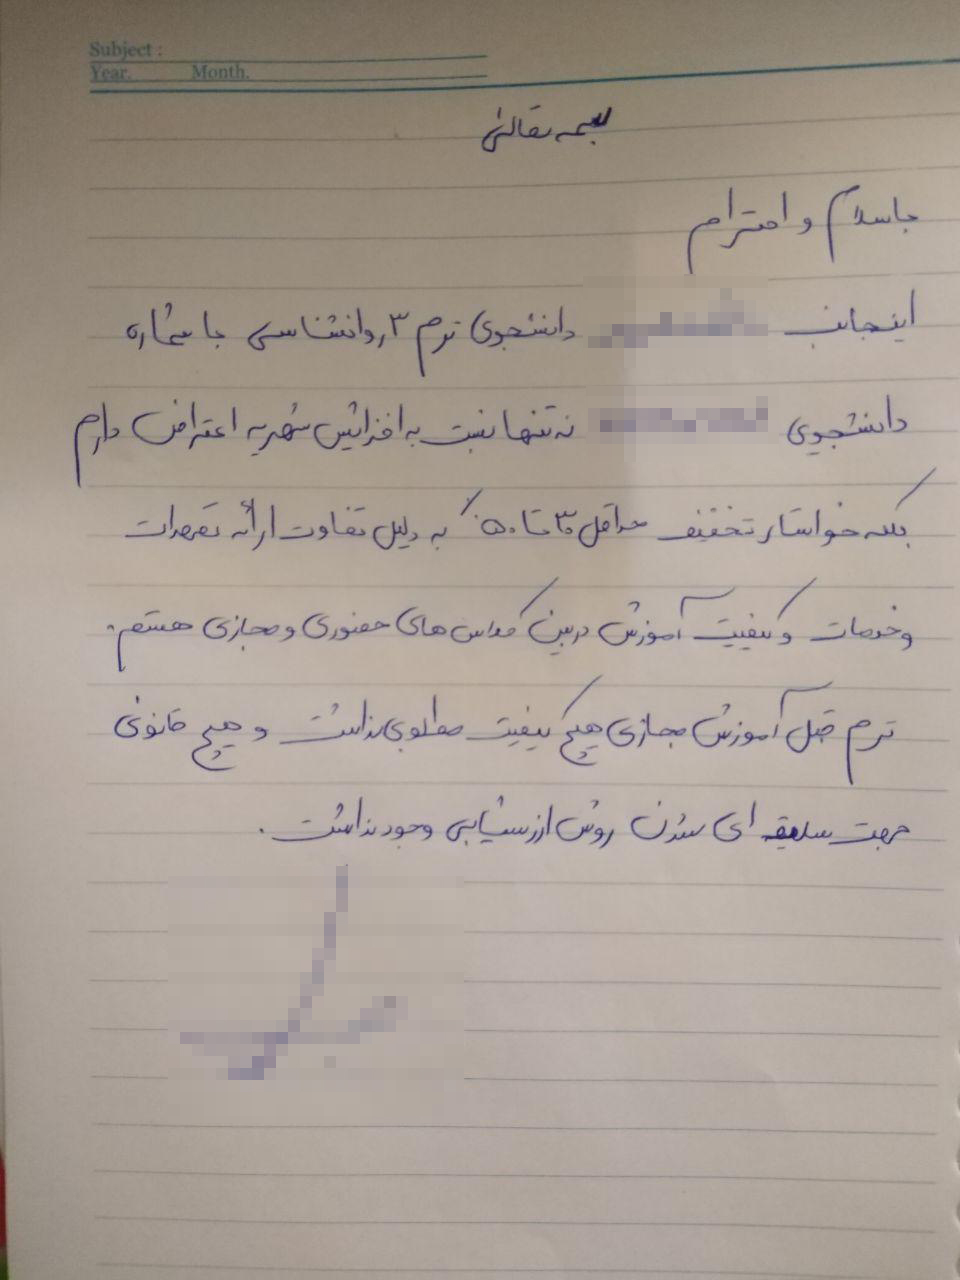 Subject :
Year. Month.
بسمه تعالی
با سلام و احترام
اینجانب دانشجوی ترم ۳ روانشناسی با شماره
دانشجویی نه تنها نسبت به افزایش شهریه اعتراض دارم
بلکه خواستار تخفیف حداقل ۳۰ تا ۵۰٪ به دلیل تفاوت ارائه تعهدات
و خدمات و کیفیت آموزش در بین کلاس های حضوری و مجازی هستم.
ترم قبل آموزش مجازی هیچ کیفیت مطلوبی نداشت و هیچ قانونی
جهت سلیقه ای شدن روش ارزشیابی وجود نداشت.